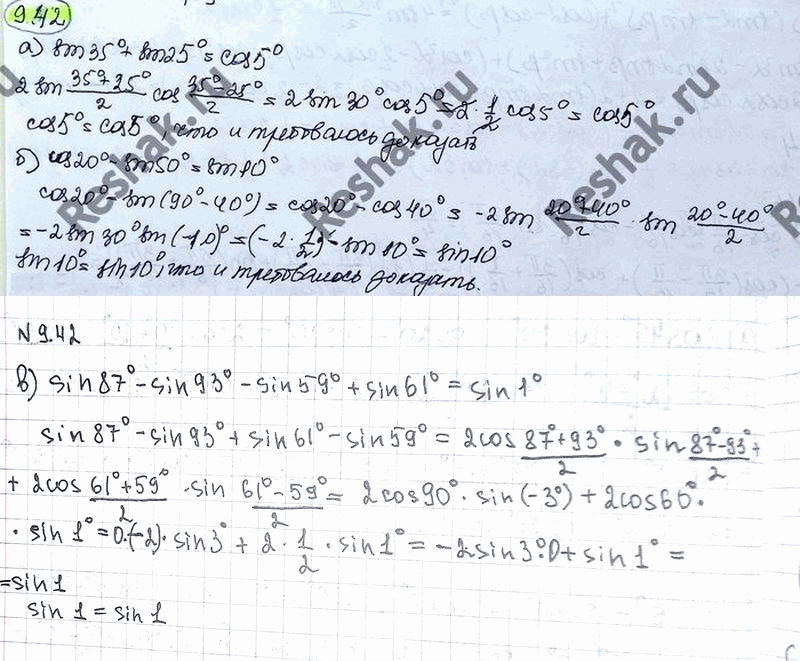 9.42
а) sin 35° + sin 25° = cos 5°
2 sin 35°+25°/2 cos 35°-25°/2 = 2 sin 30° cos 5° = 2 · 1/2 cos 5° = cos 5°
cos 5° = cos 5°, что и требовалось доказать
б) cos 20° - sin 50° = sin 10°
cos 20° - sin (90° - 40°) = cos 20° - cos 40° = -2 sin 20°+40°/2 · sin 20°-40°/2
= -2 sin 30° sin (-10)° = (-2 · 1/2) · -sin 10° = sin 10°
sin 10° = sin 10°, что и требовалось доказать.
N 9.42
в) sin 87° - sin 93° - sin 59° + sin 61° = sin 1°
sin 87° - sin 93° + sin 61° - sin 59° = 2cos 87°+93°/2 · sin 87°-93°/2 +
+ 2cos 61°+59°/2 · sin 61°-59°/2 = 2cos 90° · sin (-3°) + 2cos 60° ·
· sin 1° = 0·(-2) · sin 3° + 2 · 1/2 · sin 1° = -2 sin 3°·0 + sin 1° =
= sin 1
sin 1 = sin 1
Reshak.ru
Reshak.ru
Reshak.ru